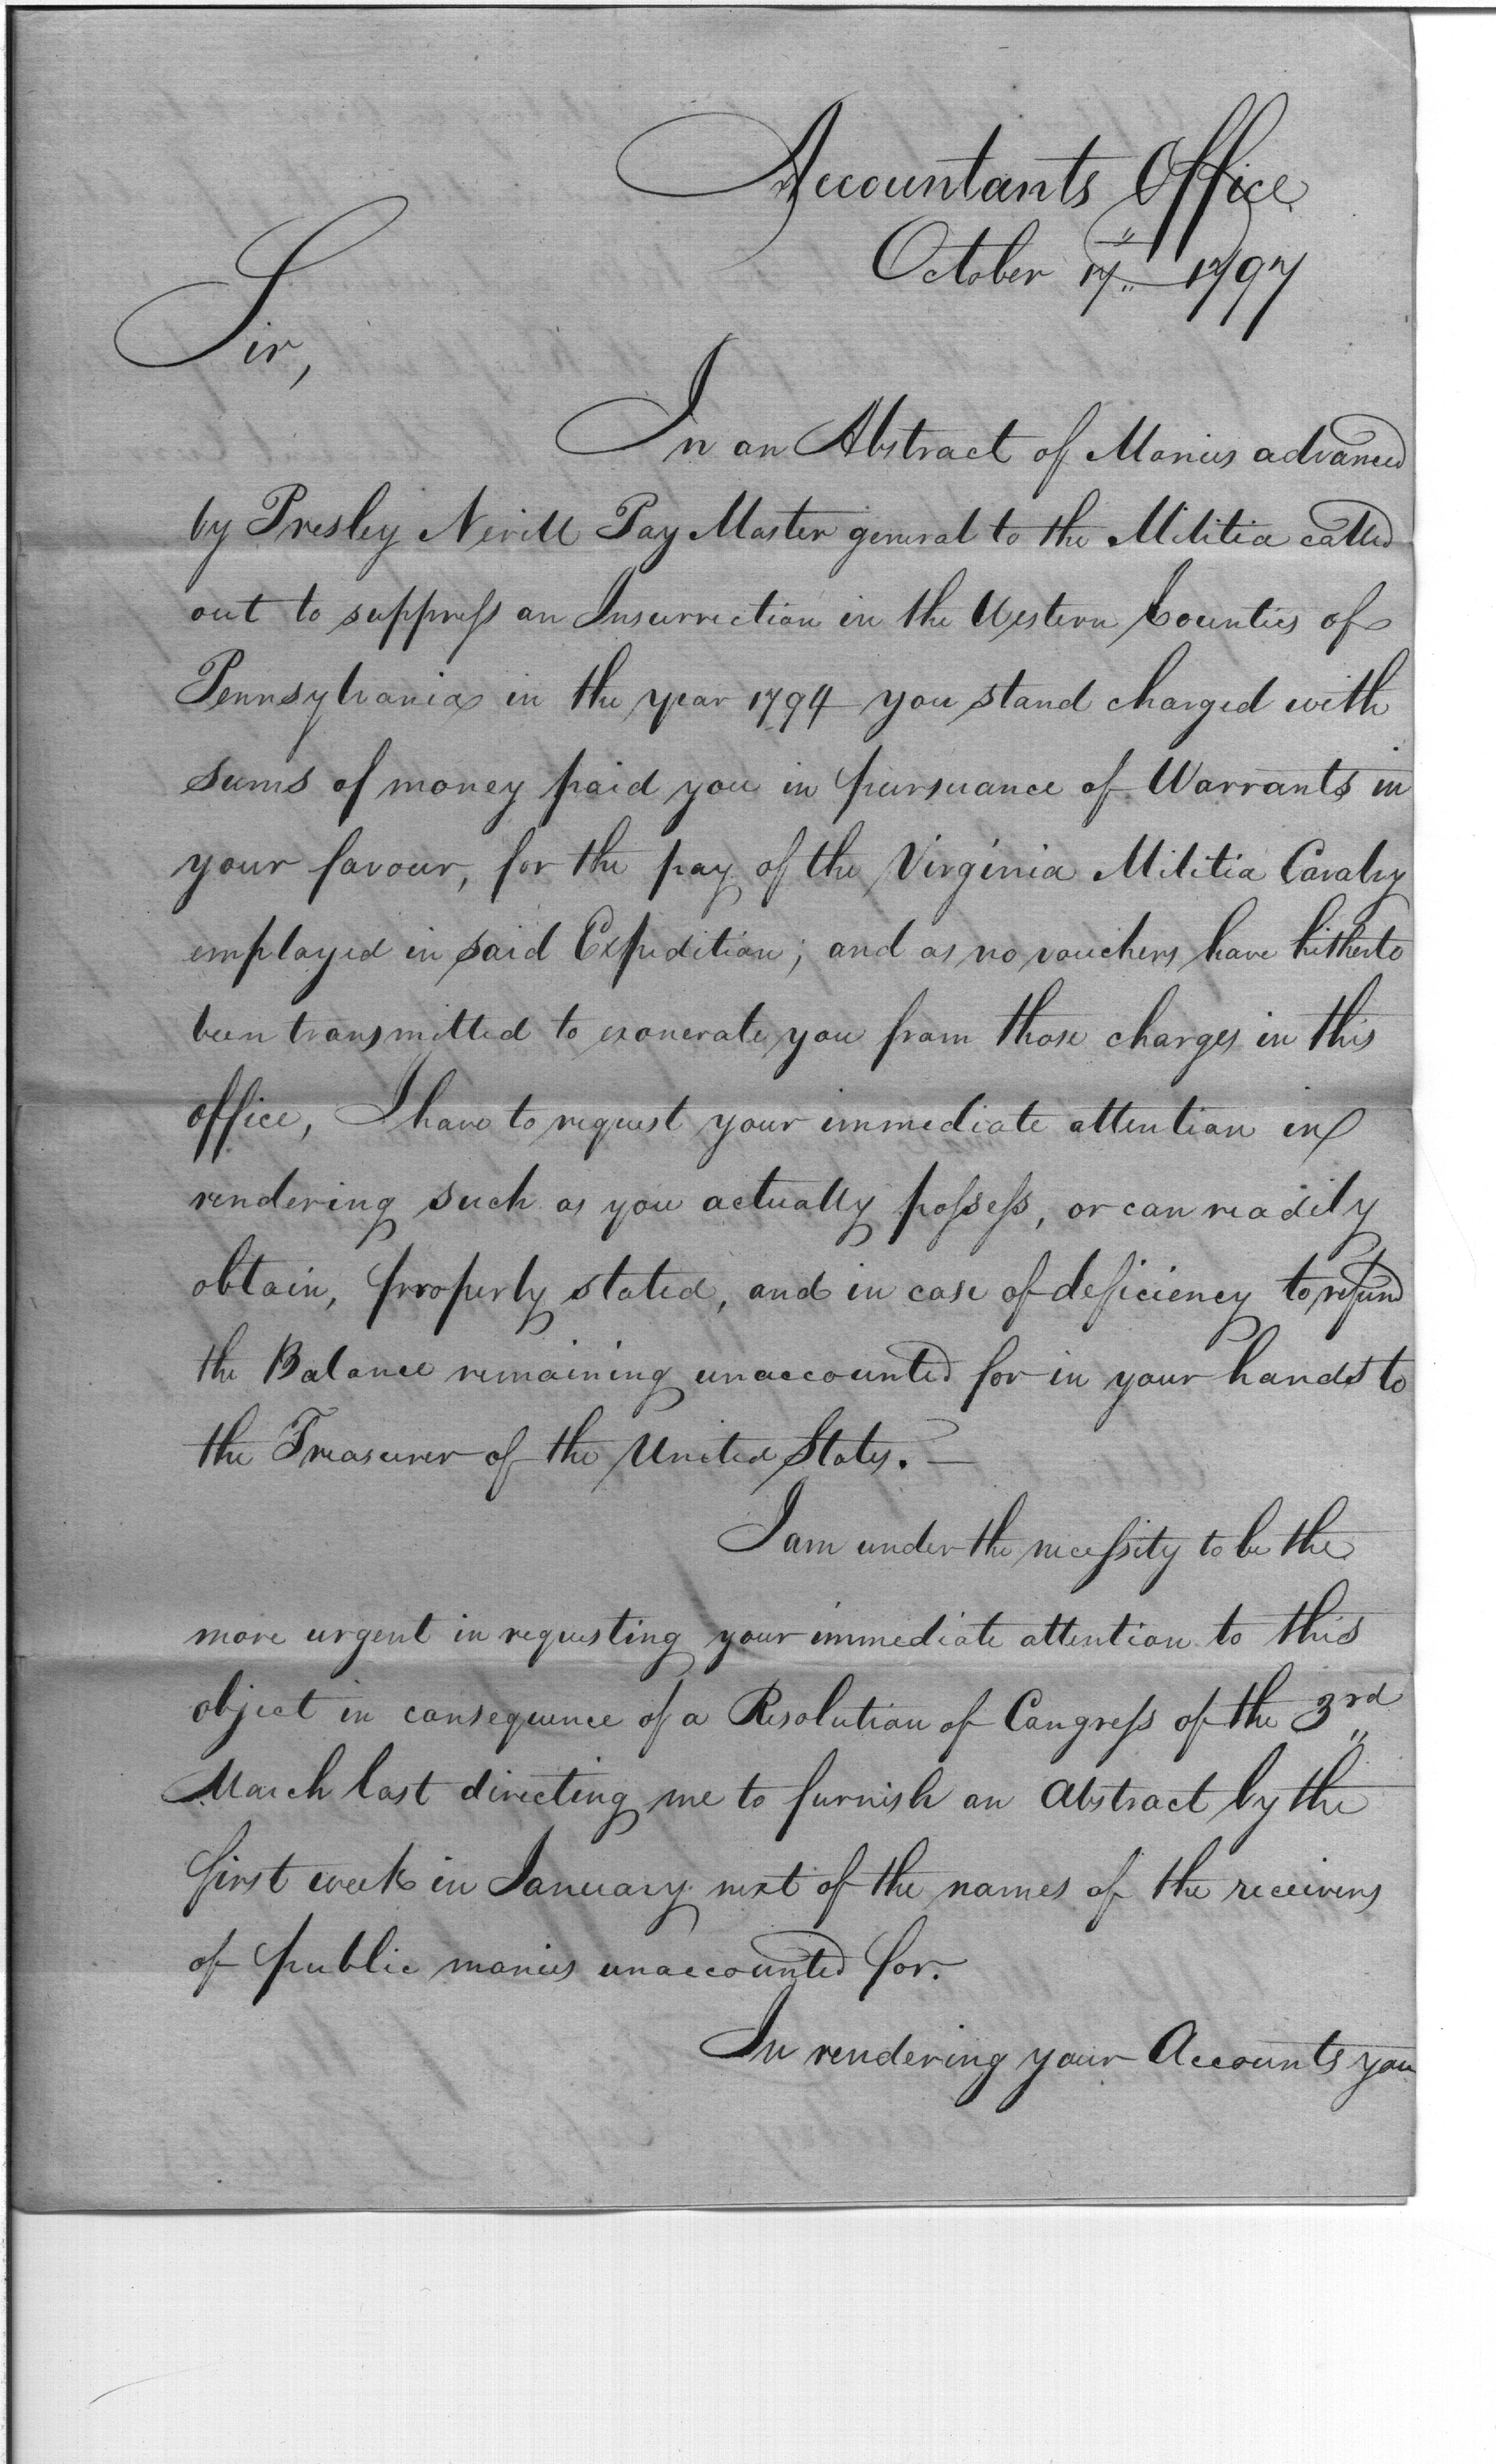 Accountants Office
October 17th 1797
Sir,
In an Abstract of Monies advanced
by Presley Nevill Pay Master general to the Militia called
out to suppress an Insurrection in the Western Counties of
Pennsylvania in the year 1794 you stand charged with
sums of money paid you in pursuance of Warrants in
your favour, for the pay of the Virginia Militia Cavalry
employed in said Expedition; and as no vouchers have hitherto
been transmitted to exonerate you from those charges in this
office, I have to request your immediate attention in
rendering such as you actually possess, or can readily
obtain, properly stated, and in case of deficiency to refund
the Balance remaining unaccounted for in your hands to
the Treasurer of the United States. —
I am under the necessity to be the
more urgent in requesting your immediate attention to this
object in consequence of a Resolution of Congress of the 3rd
March last directing me to furnish an Abstract by the
first week in January next of the names of the receivers
of public monies unaccounted for.
In rendering your Accounts you